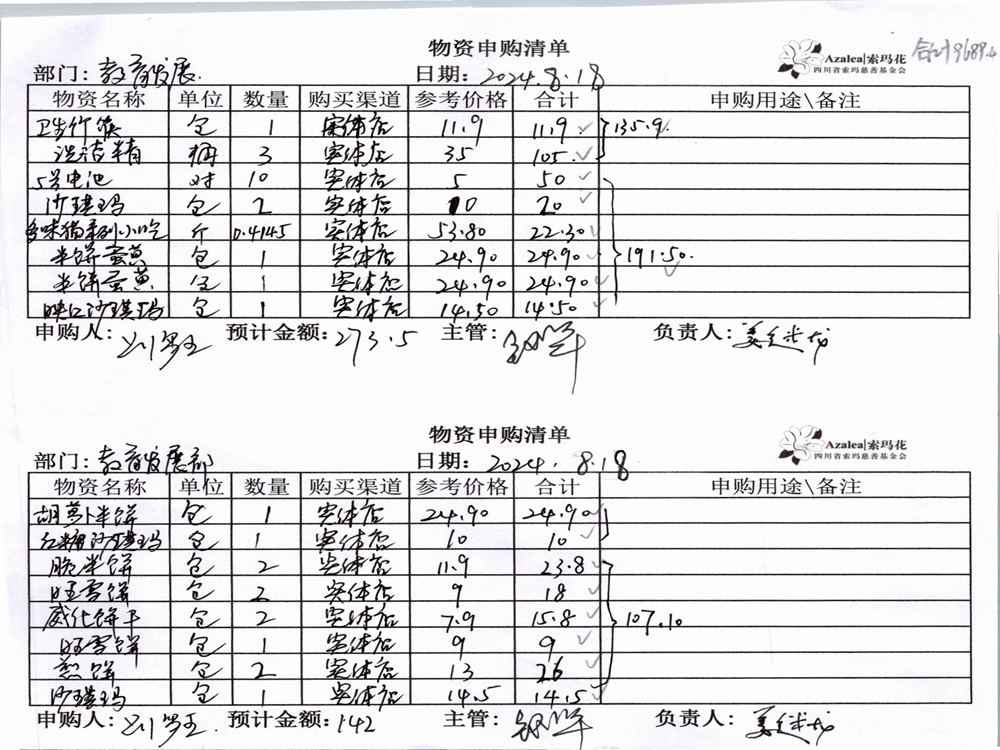 物资申购清单
Azalea|索玛花
四川省索玛慈善基金会
合计9689.4
部门：教育发展
日期：2024.8.18
物资名称 单位 数量 购买渠道 参考价格 合计 申购用途\备注
卫生竹筷 包 1 实体店 11.9 11.9 135.9
洗洁精 3 实体店 35 105
5号电池 对 10 实体店 5 50
沙琪玛 包 2 实体店 10 20
斤 0.4145 实体店 53.80 22.30
米饼蛋黄 包 1 实体店 24.90 24.90 191.50
米饼蛋黄 包 1 实体店 24.90 24.90
沙琪玛 包 1 实体店 14.50 14.50
申购人： 预计金额：273.5 主管： 负责人：
物资申购清单
Azalea|索玛花
四川省索玛慈善基金会
部门：教育发展部
日期：2024.8.18
物资名称 单位 数量 购买渠道 参考价格 合计 申购用途\备注
胡萝卜米饼 包 1 实体店 24.90 24.90
红糖沙琪玛 包 1 实体店 10 10
脆米饼 包 2 实体店 11.9 23.8
旺雪饼 包 2 实体店 9 18
威化饼干 包 2 实体店 7.9 15.8 107.10
旺雪饼 包 1 实体店 9 9
煎饼 包 2 实体店 13 26
沙琪玛 包 1 实体店 14.5 14.5
申购人： 预计金额：142 主管： 负责人：